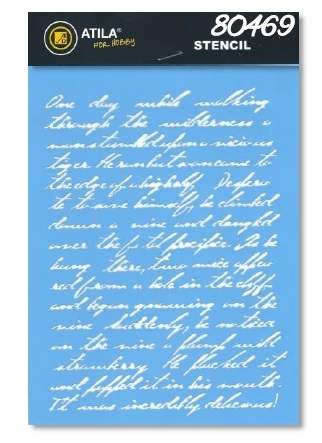 ATILA®
FOR HOBBY
80469
STENCIL
One day while walking
through the wilderness a
man stumbled upon a vicious
tiger. He run but soon came to
the edge of a high cliff. Despera
te to save himself, he climbed
down a vine and dangled
over the fatal precipice. As he
hung there, two mice appea
red from a hole in the cliff
and began gnawing on the
vine. Suddenly, he noticed
on the vine a plump wild
strawberry. He plucked it
and popped it in his mouth.
It was incredibly delicious!